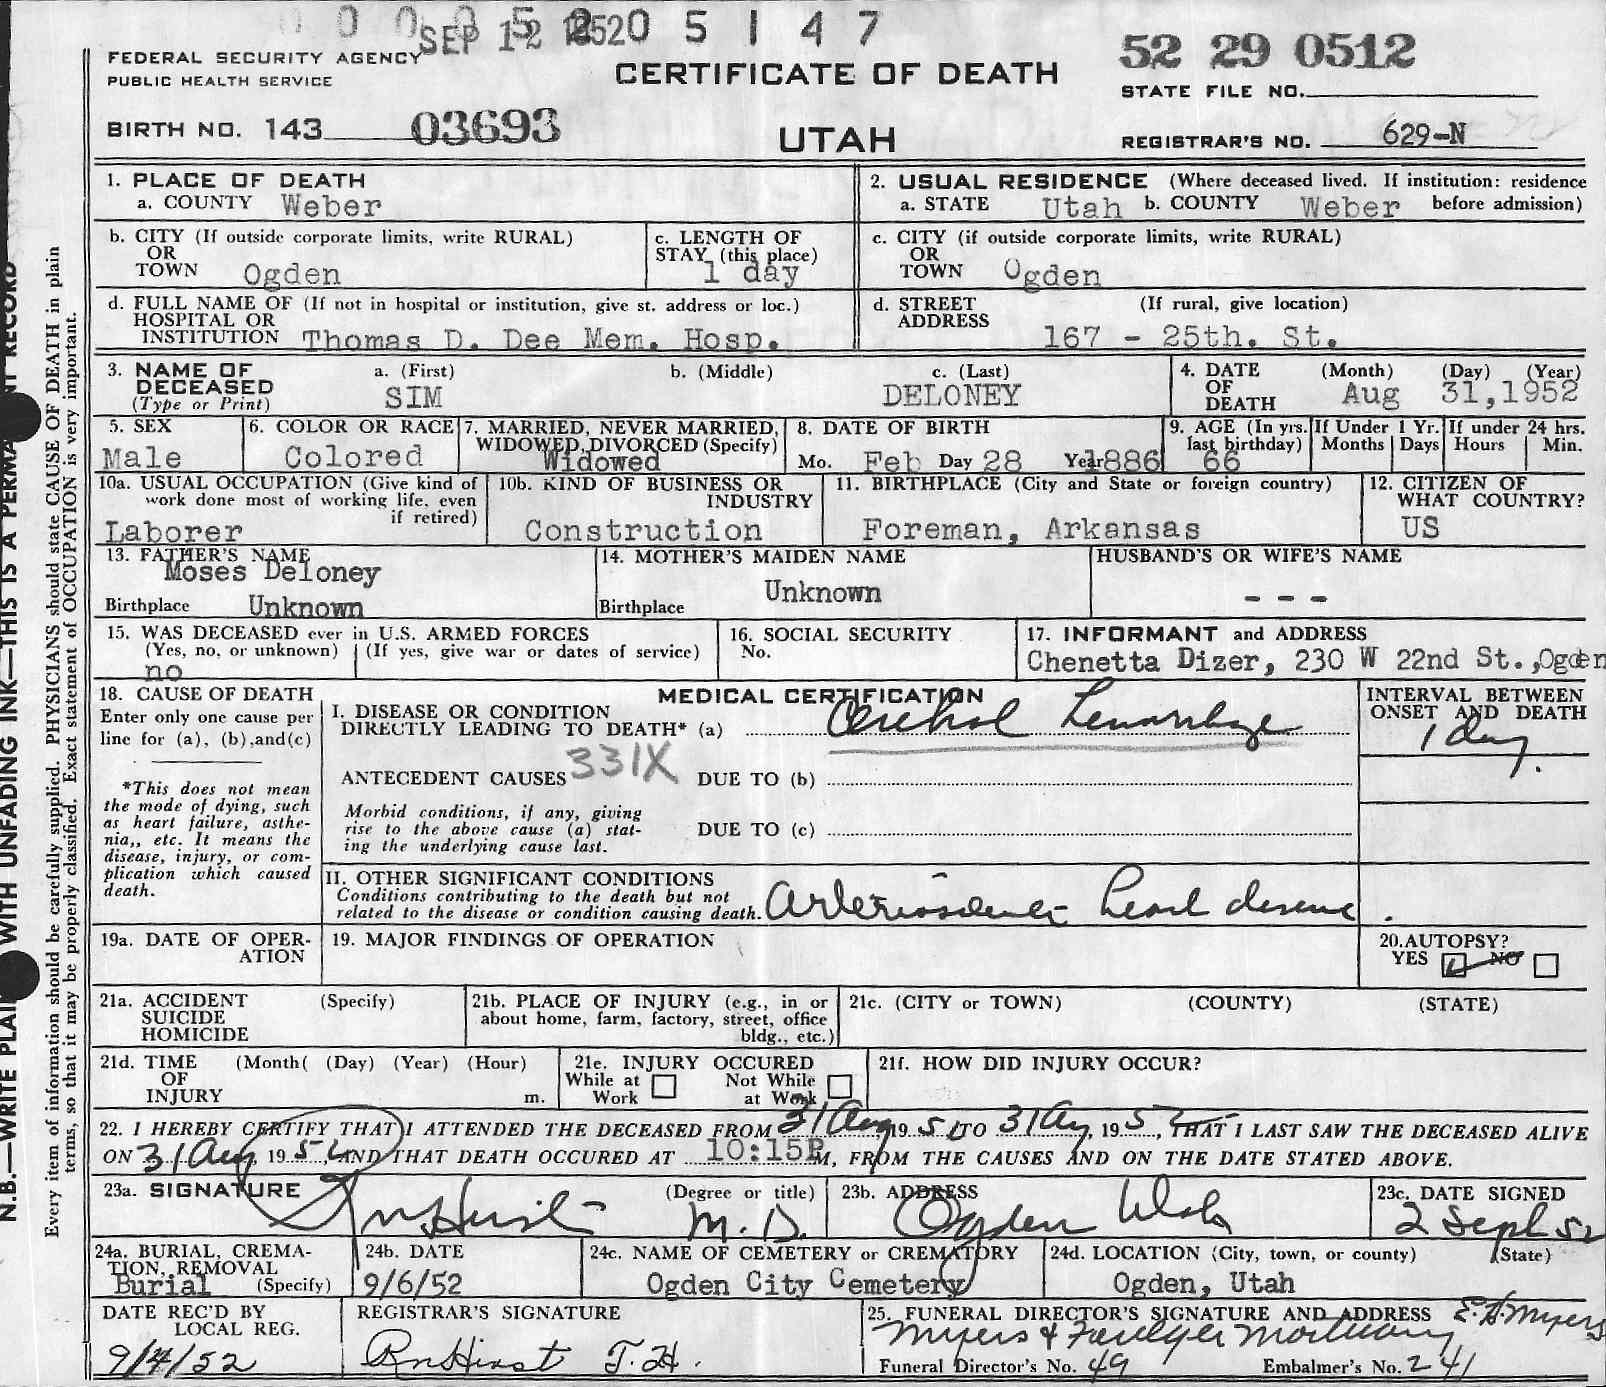 SEP 12 1952 0 5 1 4 7
FEDERAL SECURITY AGENCY
PUBLIC HEALTH SERVICE
CERTIFICATE OF DEATH
52 29 0512
STATE FILE NO.
BIRTH NO. 143 03693
UTAH
REGISTRAR'S NO. 629-N
1. PLACE OF DEATH
a. COUNTY Weber
2. USUAL RESIDENCE (Where deceased lived. If institution: residence
a. STATE Utah b. COUNTY Weber before admission)
b. CITY (If outside corporate limits, write RURAL)
OR
TOWN Ogden
c. LENGTH OF
STAY (this place)
1 day
c. CITY (if outside corporate limits, write RURAL)
OR
TOWN Ogden
d. FULL NAME OF (If not in hospital or institution, give st. address or loc.)
HOSPITAL OR
INSTITUTION Thomas D. Dee Mem. Hosp.
d. STREET (If rural, give location)
ADDRESS
167 - 25th. St.
3. NAME OF
DECEASED
(Type or Print)
a. (First)
SIM
b. (Middle)
c. (Last)
DELONEY
4. DATE (Month) (Day) (Year)
OF
DEATH Aug 31,1952
5. SEX
Male
6. COLOR OR RACE
Colored
7. MARRIED, NEVER MARRIED,
WIDOWED, DIVORCED (Specify)
Widowed
8. DATE OF BIRTH
Mo. Feb Day 28 Year 1886
9. AGE (In yrs.
last birthday)
66
If Under 1 Yr.
Months Days
If under 24 hrs.
Hours Min.
10a. USUAL OCCUPATION (Give kind of
work done most of working life, even
if retired)
Laborer
10b. KIND OF BUSINESS OR
INDUSTRY
Construction
11. BIRTHPLACE (City and State or foreign country)
Foreman, Arkansas
12. CITIZEN OF
WHAT COUNTRY?
US
13. FATHER'S NAME
Moses Deloney
Birthplace Unknown
14. MOTHER'S MAIDEN NAME
Unknown
Birthplace
HUSBAND'S OR WIFE'S NAME
- - -
15. WAS DECEASED ever in U.S. ARMED FORCES
(Yes, no, or unknown) (If yes, give war or dates of service)
no
16. SOCIAL SECURITY
No.
17. INFORMANT and ADDRESS
Chenetta Dizer, 230 W 22nd St.,Ogden
18. CAUSE OF DEATH
Enter only one cause per
line for (a), (b),and(c)
*This does not mean
the mode of dying, such
as heart failure, asthe-
nia,, etc. It means the
disease, injury, or com-
plication which caused
death.
MEDICAL CERTIFICATION
I. DISEASE OR CONDITION
DIRECTLY LEADING TO DEATH* (a) Cerebral hemorrhage
ANTECEDENT CAUSES 331X DUE TO (b)
Morbid conditions, if any, giving
rise to the above cause (a) stat-
ing the underlying cause last.
DUE TO (c)
II. OTHER SIGNIFICANT CONDITIONS
Conditions contributing to the death but not
related to the disease or condition causing death. heart disease.
INTERVAL BETWEEN
ONSET AND DEATH
1 day.
19a. DATE OF OPER-
ATION
19. MAJOR FINDINGS OF OPERATION
20.AUTOPSY?
YES NO
21a. ACCIDENT (Specify)
SUICIDE
HOMICIDE
21b. PLACE OF INJURY (e.g., in or
about home, farm, factory, street, office
bldg., etc.)
21c. (CITY or TOWN) (COUNTY) (STATE)
21d. TIME (Month( (Day) (Year) (Hour)
OF
INJURY m.
21e. INJURY OCCURED
While at Work
Not While at Work
21f. HOW DID INJURY OCCUR?
22. I HEREBY CERTIFY THAT I ATTENDED THE DECEASED FROM 31 Aug, 19 52 TO 31 Aug, 1952, THAT I LAST SAW THE DECEASED ALIVE
ON 31 Aug, 1952, AND THAT DEATH OCCURED AT 10:15P M, FROM THE CAUSES AND ON THE DATE STATED ABOVE.
23a. SIGNATURE (Degree or title)
M.D.
23b. ADDRESS
Ogden Utah
23c. DATE SIGNED
2 Sept 52
24a. BURIAL, CREMA-
TION, REMOVAL
Burial (Specify)
24b. DATE
9/6/52
24c. NAME OF CEMETERY or CREMATORY
Ogden City Cemetery
24d. LOCATION (City, town, or county) (State)
Ogden, Utah
DATE REC'D BY
LOCAL REG.
9/4/52
REGISTRAR'S SIGNATURE
25. FUNERAL DIRECTOR'S SIGNATURE AND ADDRESS E.A. Myers
Myers & Foulger Mortuary
Funeral Director's No. 49 Embalmer's No. 241
N.B.—WRITE PLAIN WITH UNFADING INK—THIS IS A PERMA NT RECORD
Every item of information should be carefully supplied. PHYSICIANS should state CAUSE OF DEATH in plain
terms, so that it may be properly classified. Exact statement of OCCUPATION is very important.